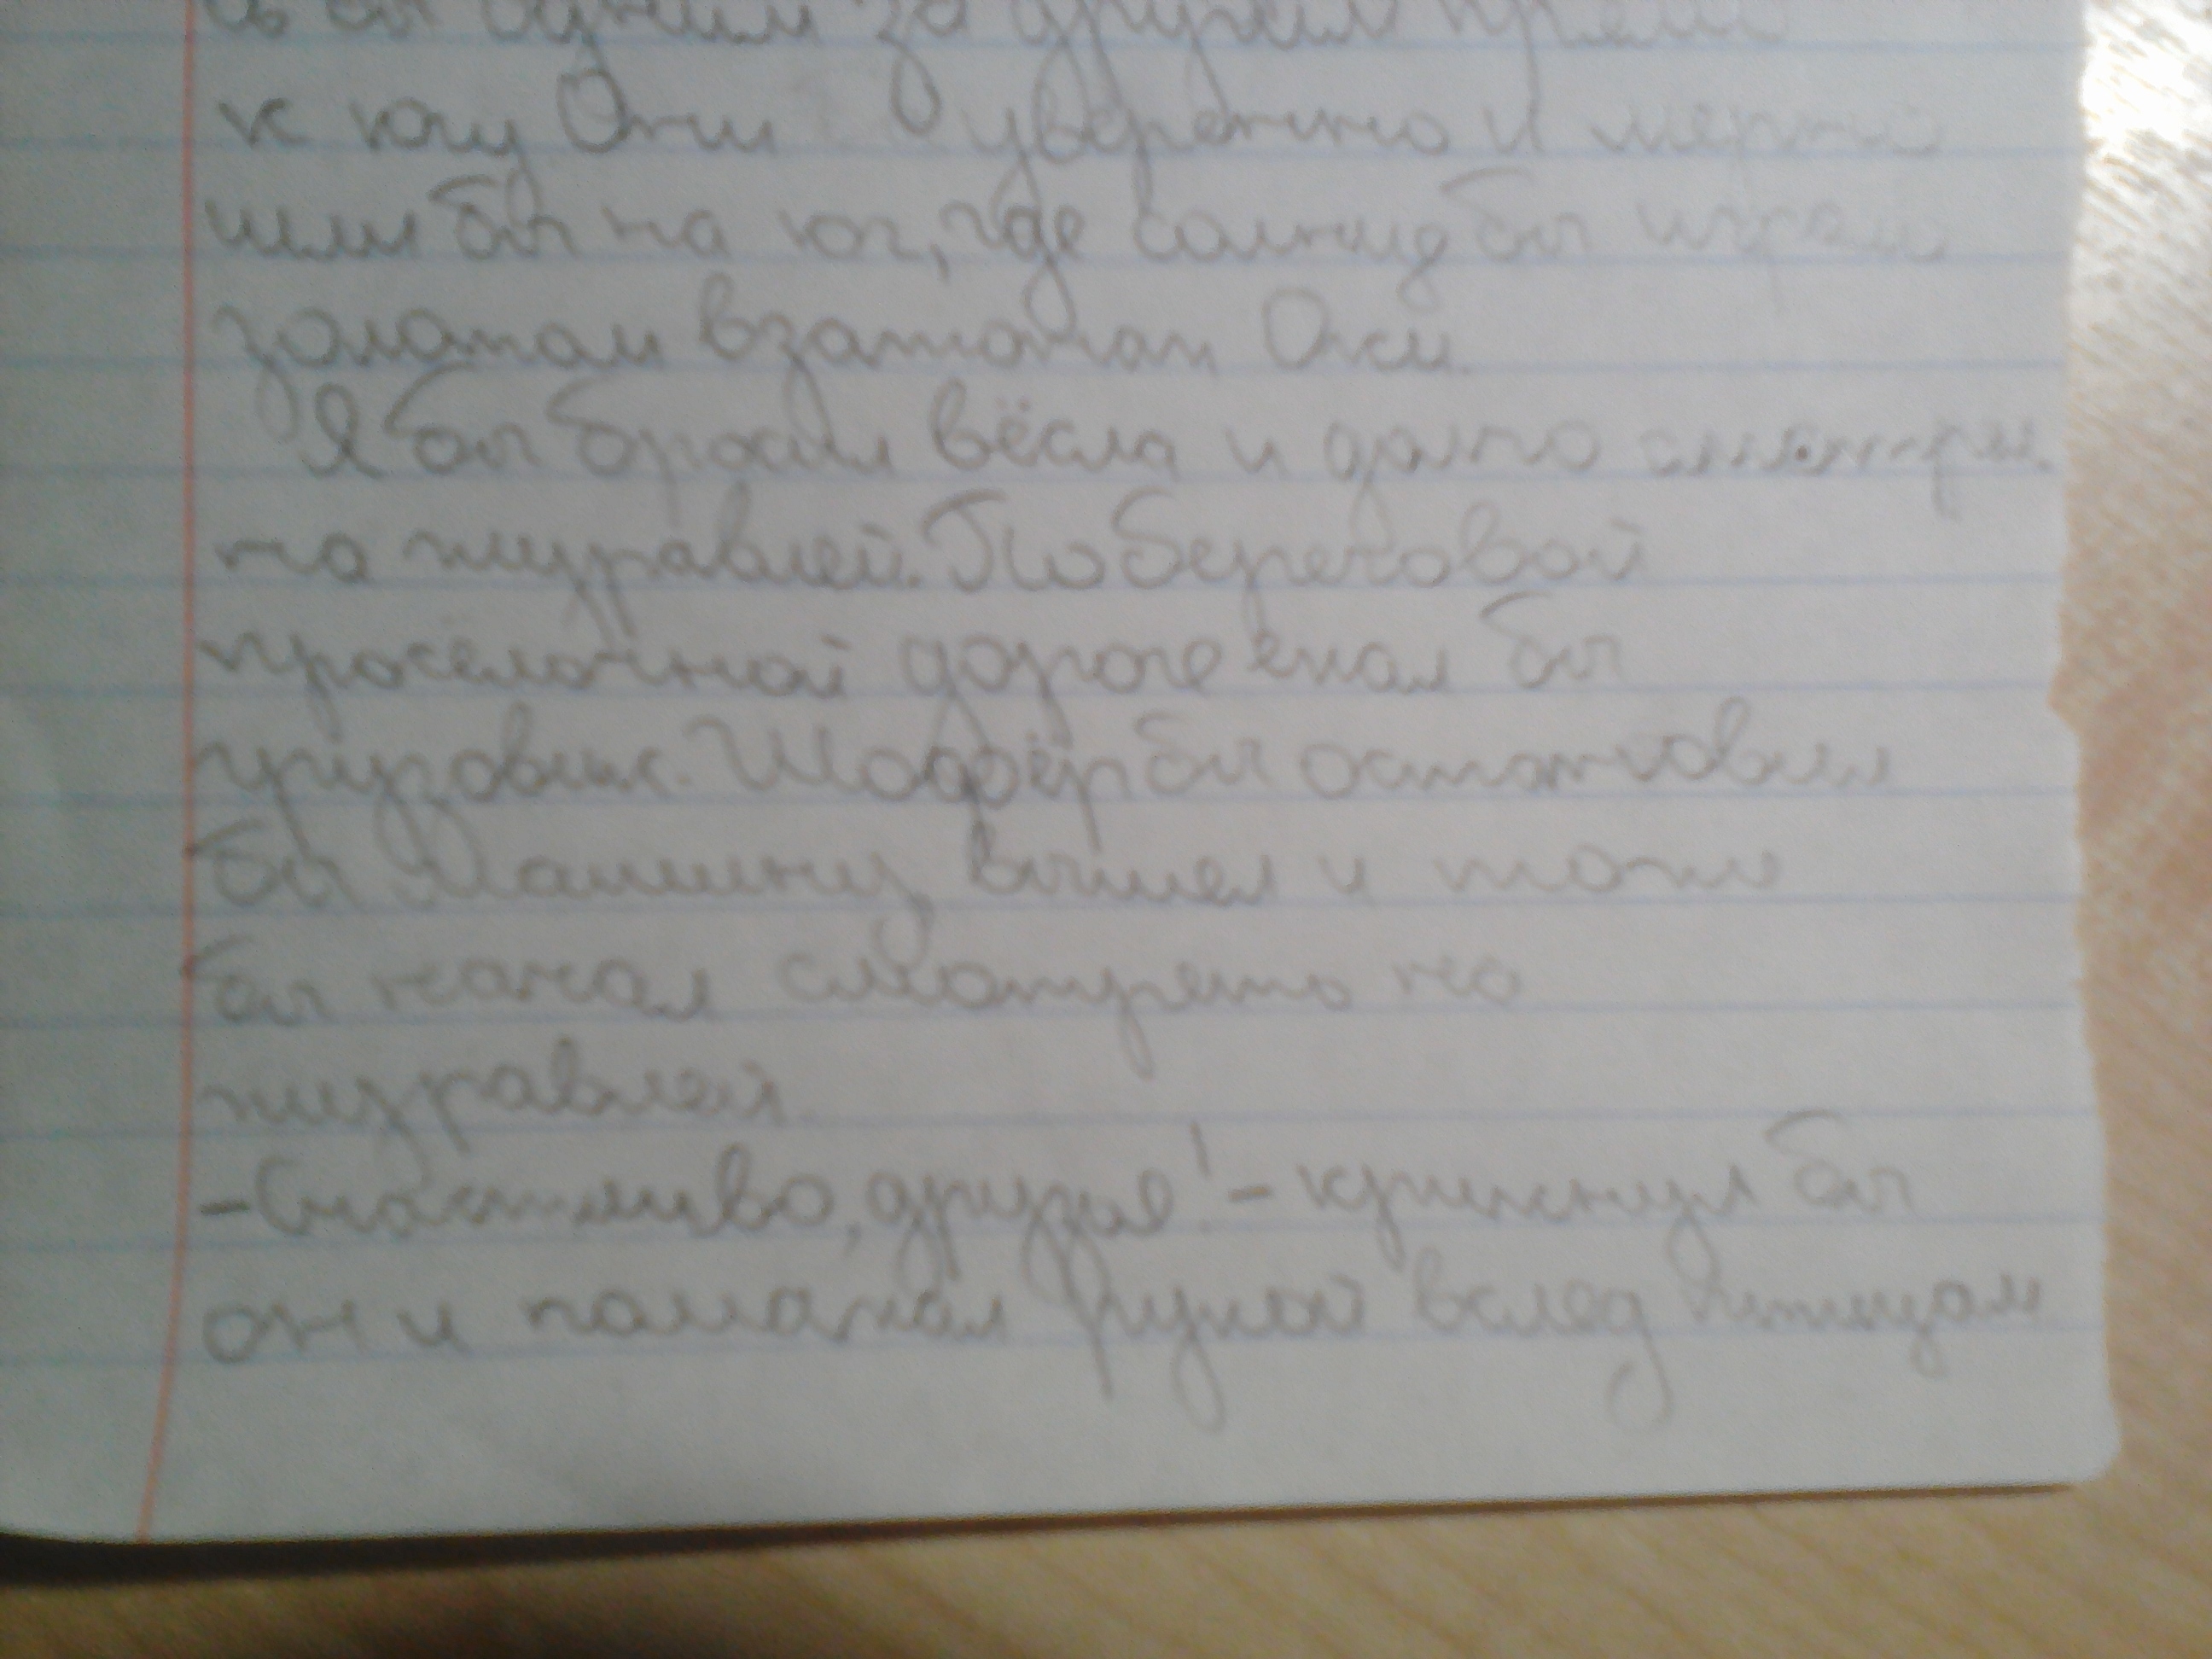 бы одним за другим прямо
к югу Они уверенно и мерно
шли бы на юг, где солнце бы играло
золотом в затонах Оки.
Я бы бросил вёсла и долго смотрел
на журавлей. По береговой
просёлочной дороге ехал бы
грузовик. Шофёр бы остановил
бы машину, вышел и тоже
бы начал смотреть на
журавлей.
-Счастливо, друзья! - крикнул бы
он и помахал рукой вслед птицам